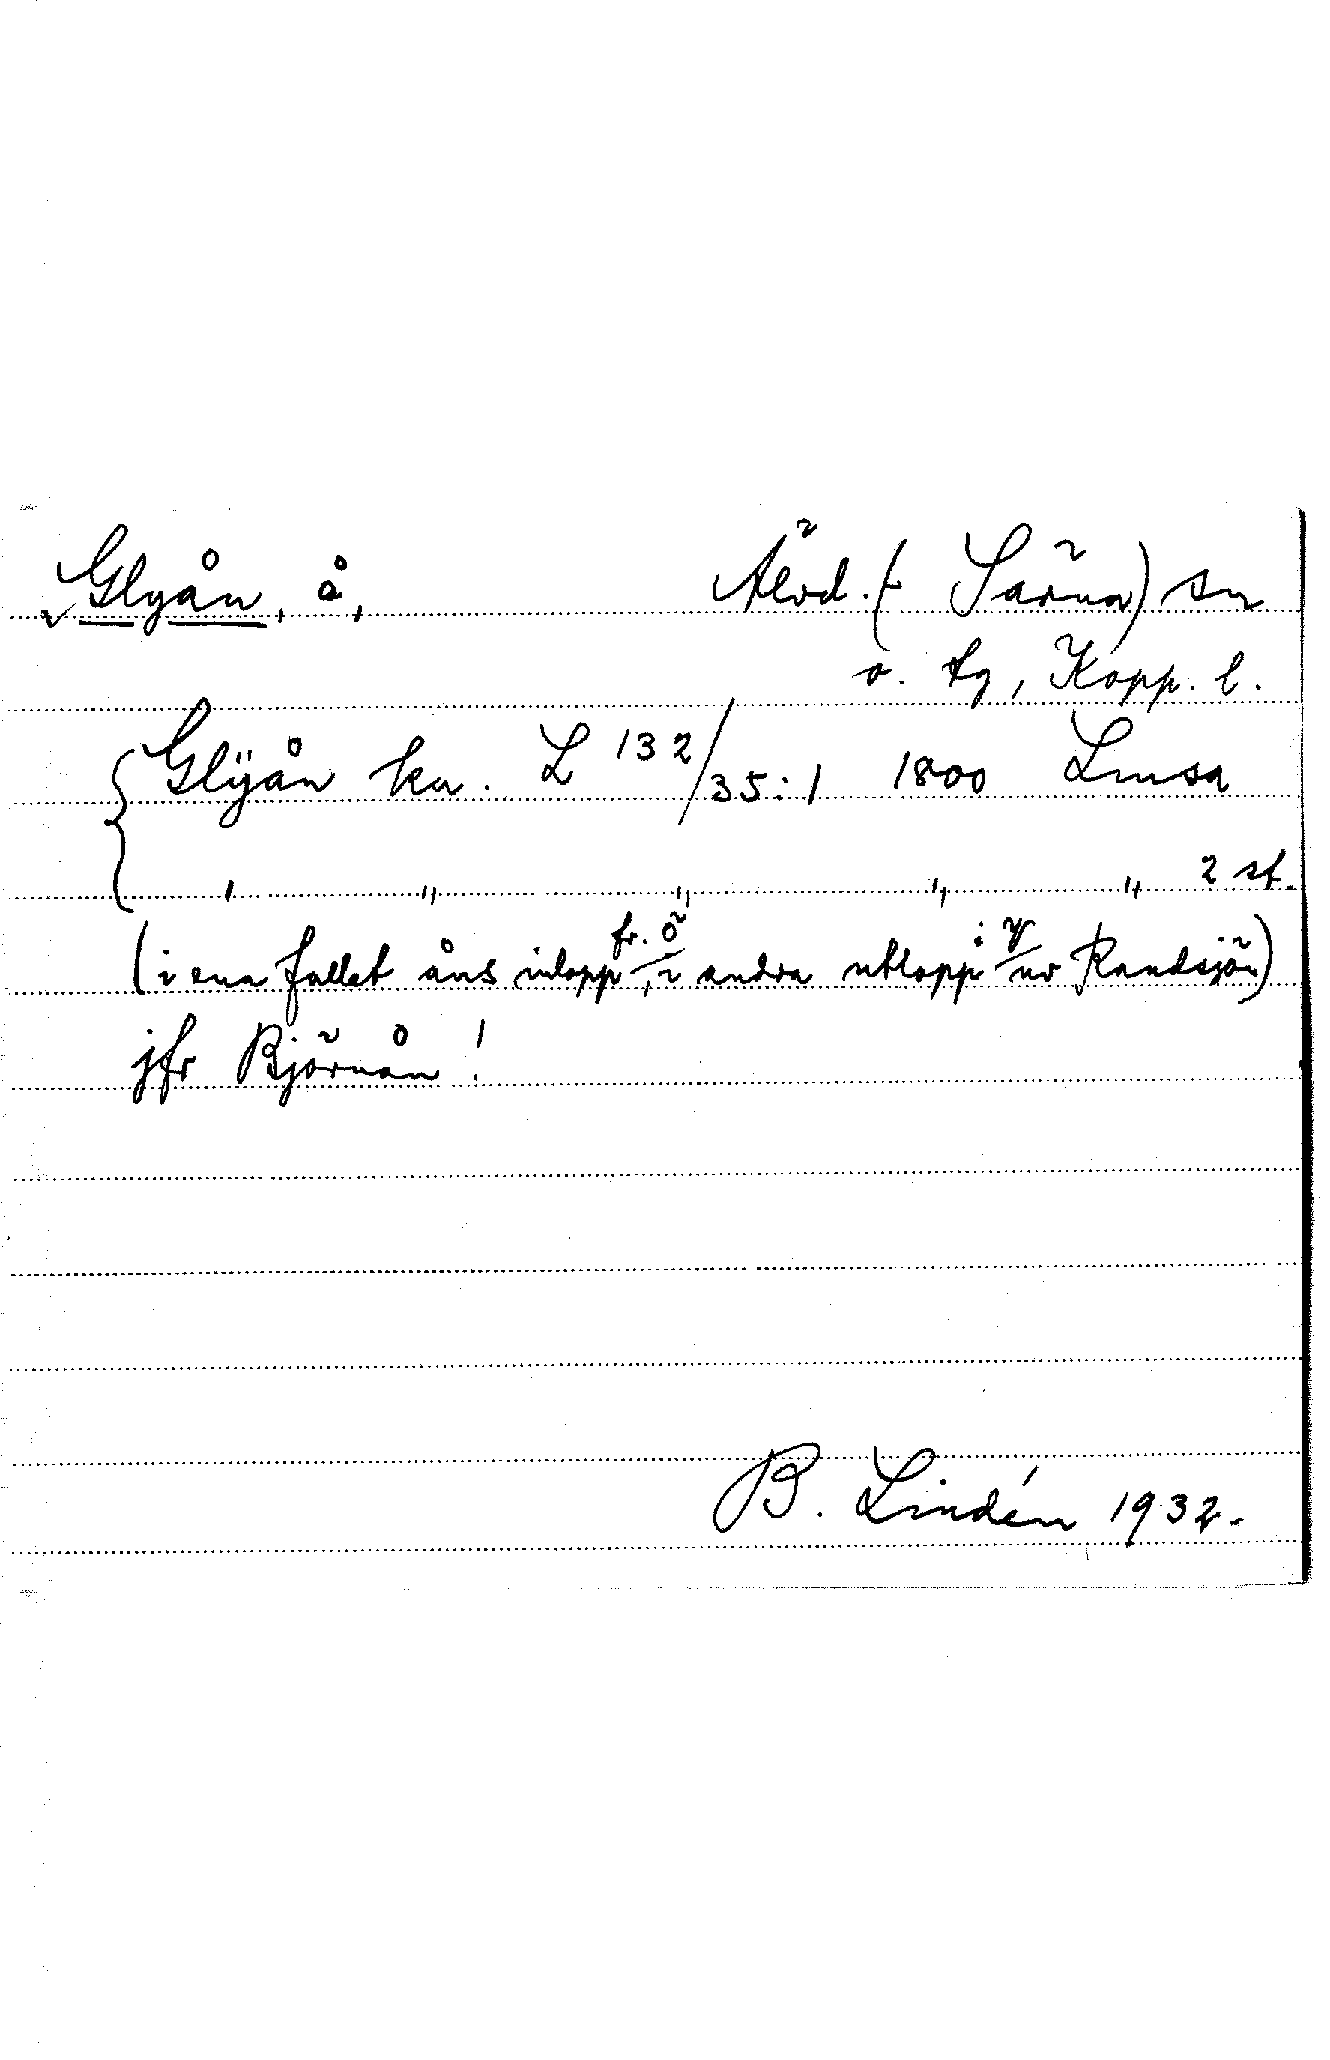 Glyån, å, Älvd. (- Särna) sn
o. tg, Kopp. l.
Glÿån ka. L 132/35:1 1800 Lmsa
" " " " " 2 st.
(i ena fallet åns inlopp fr. ö, i andra utlopp i v ur Randsjön)
jfr Björnån!
B. Lindén 1932.